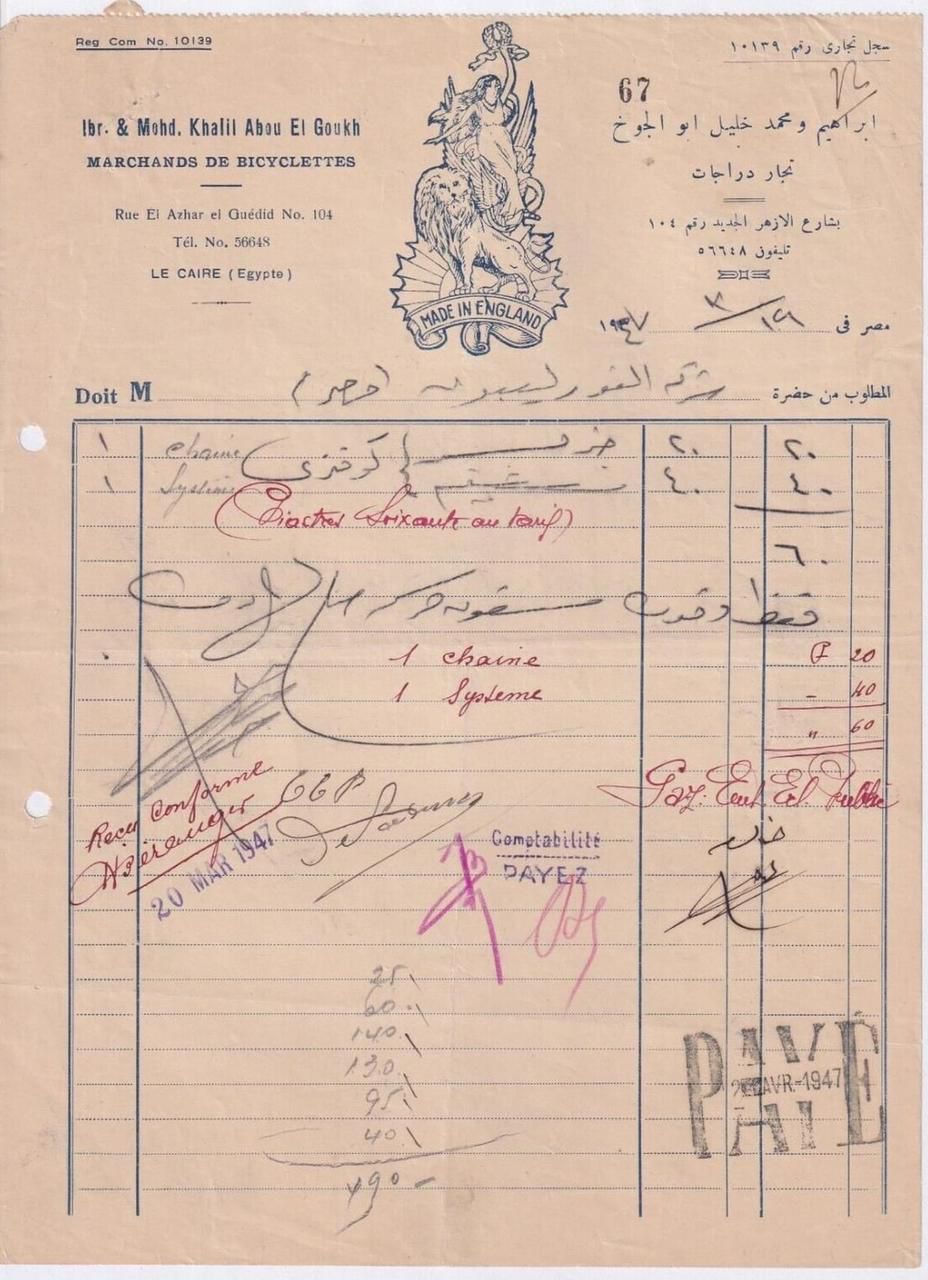 Reg Com No. 10139
سجل تجارى رقم ١٠١٣٩
67
Ibr. & Mohd. Khalil Abou El Goukh
ابراهيم ومحمد خليل ابو الجوخ
MARCHANDS DE BICYCLETTES
تجار دراجات
Rue El Azhar el Guédid No. 104
بشارع الازهر الجديد رقم ١٠٤
Tél. No. 56648
تليفون ٥٦٦٤٨
LE CAIRE (Egypte)
MADE IN ENGLAND
مصر فى
Doit M
شركة
المطلوب من حضرة
١ chaine ٢٠ ٢٠
١ Système ٤٠ ٤٠
(Piastres Soixante au tarif)
٦٠
فقط وقدره
1 chaine P 20
1 Systeme - 40
" 60
Recu Conforme
Gaz. Ent. Ecl. Public
20 MAR 1947
Comptabilité
PAYEZ
25
60
140
130
95
40
490 -
PAYÉ
AVR.-1947